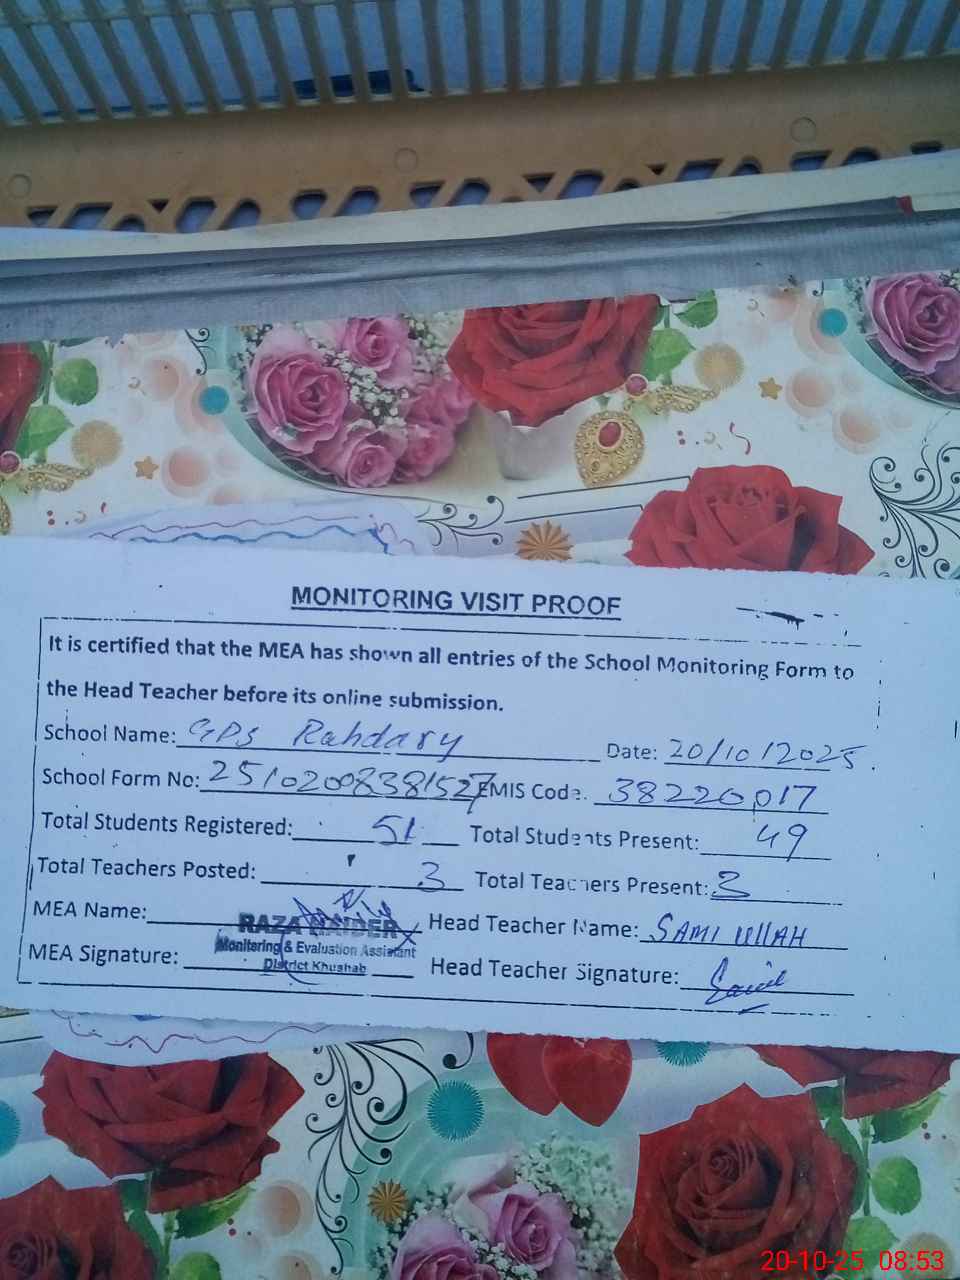 MONITORING VISIT PROOF
It is certified that the MEA has shown all entries of the School Monitoring Form to
the Head Teacher before its online submission.
School Name: GPS Rahdary Date: 20/10/2025.
School Form No: 25102008381527 EMIS Code. 38220017
Total Students Registered: 51 Total Students Present: 49
Total Teachers Posted: 3 Total Teachers Present: 3
MEA Name: RAZA HAIDER Head Teacher Name: SAMI ULLAH
Monitoring & Evaluation Assistant
MEA Signature: District Khushab Head Teacher Signature: Sami
20-10-25 08:53